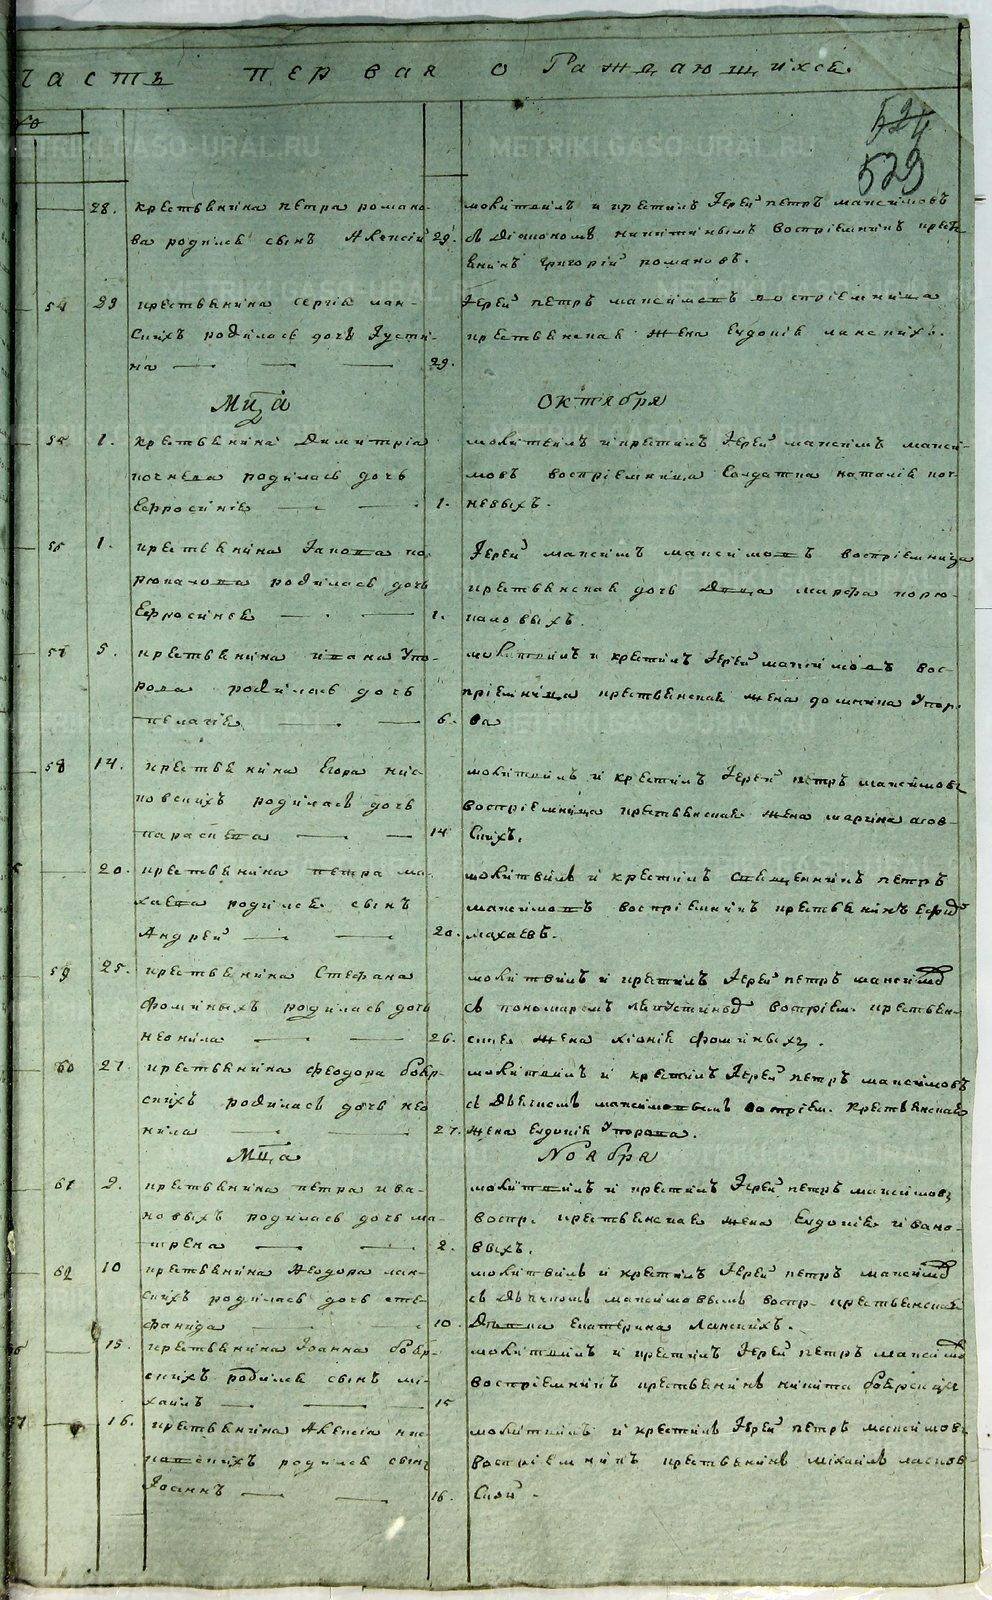 Часть первая о Раждающихся.
524
529
28. крестьянина петра романо-
ва родился сынъ Алексій 29.
молитвилъ и крестилъ Іерей петръ максимовъ
съ Діакономъ никитинымъ воспріемникъ крест
янинъ григорій романовъ.
54 29 крестьянина сергія лан-
скихъ родилась дочь Іусти-
на 29.
Іерей петръ максимовъ воспріемница
крестьянская жена Евдокія ланскихъ.
Мца Октября
55 1. крестьянина Димитрія
родилась дочь
Ефросинія 1.
молитвилъ и крестилъ Іерей максимъ макси-
мовъ воспріемница Солдатка наталія
невыхъ.
1. крестьянина Іакова по-
рюхалова родилась дочь
Ефросинія 1.
Іерей максимъ максимовъ воспріемница
крестьянская дочь Двца марфа порю-
халовыхъ.
57 5. крестьянина ивана Упо-
рова родилась дочь
пелагія 6.
молитвилъ и крестилъ Іерей максимовъ вос-
пріемница крестьянская жена домнина Упоро
ва
58 14. крестьянина Егора
родилась дочь
параскева 14
молитвилъ и крестилъ Іерей петръ максимовъ
воспріемница крестьянская жена марина
скихъ.
20. крестьянина петра ма-
хаева родился сынъ
Андрей 20.
молитвилъ и крестилъ священникъ петръ
максимовъ воспріемникъ крестьянинъ
махаевъ.
59 25. крестьянина Стефана
фоминыхъ родилась дочь
неонила 26.
молитвилъ и крестилъ Іерей петръ максимов
съ пономаремъ воспріем. крестьян-
ская жена хіонія фоминыхъ.
60 27. крестьянина феодора бояр-
скихъ родилась дочь нео
нила 27.
молитвилъ и крестилъ Іерей петръ максимовъ
съ Дьячкомъ максимовымъ воспріем. крестьянская
жена Евдокія Упорова.
Мца Ноября
61 2. крестьянина петра ива-
новыхъ родилась дочь ма-
трена 2.
молитвилъ и крестилъ Іерей петръ максимовъ
воспр. крестьянская жена Евдокія ивано-
выхъ.
62 10 крестьянина Феодора лан-
скихъ родилась дочь сте-
фанида 10.
молитвилъ и крестилъ Іерей петръ максимов
съ Дьячкомъ максимовымъ воспр. крестьянская
Екатерина Ланскихъ.
15. крестьянина Іоанна бояр-
скихъ родился сынъ ми-
хаилъ 15
молитвилъ и крестилъ Іерей петръ максимов
воспріемникъ крестьянинъ никита боярскихъ
16. крестьянина Алексія
родился сынъ
Іоаннъ 16.
молитвилъ и крестилъ Іерей петръ максимовъ
воспріемникъ крестьянинъ михаилъ
ской.
METRIKI.GASO-URAL.RU